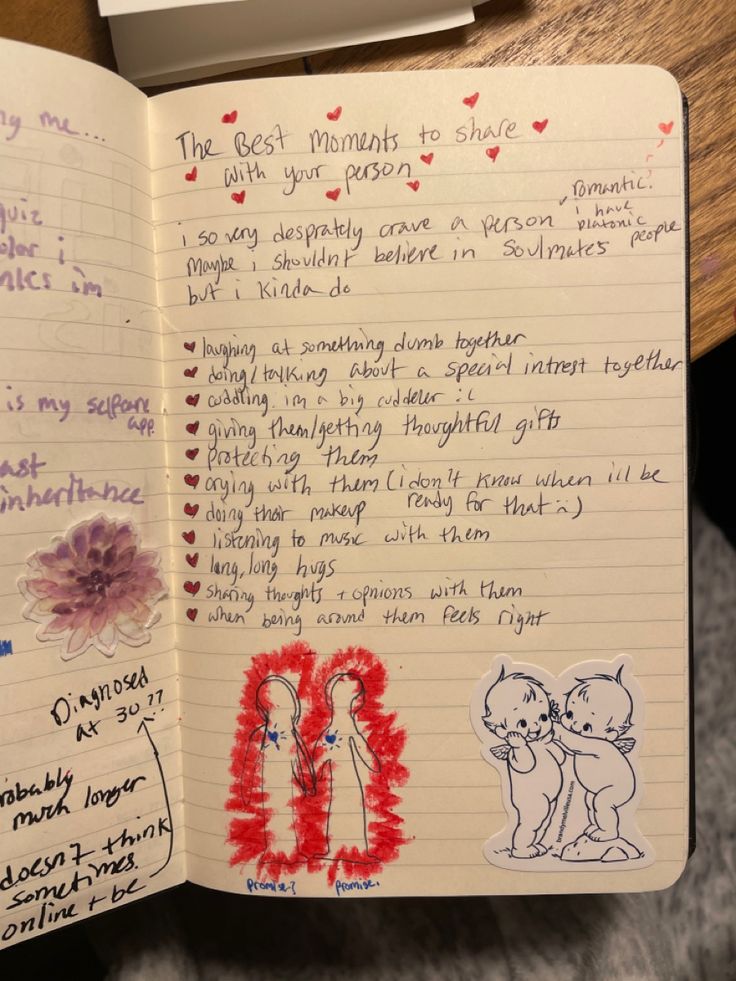 ng me...
quiz
olor i
nks im
is my selfcare
app.
ast
inheritance
Diagnosed
at 30??
robably
much longer
doesn't think
sometimes.
online + be
The Best Moments to share
with your person
i so very despratly crave a person romantic.
i have
platonic
people
Maybe i shouldnt believe in Soulmates
but i kinda do
laughing at something dumb together
doing/talking about a special intrest together
cuddling. im a big cuddeler :(
giving them/getting thoughtful gifts
protecting them
crying with them (i don't know when ill be
ready for that :,)
doing their makeup
listening to music with them
long, long hugs
sharing thoughts + opnions with them
when being around them feels right
promise?
promise.
brandymelvilleusa.com